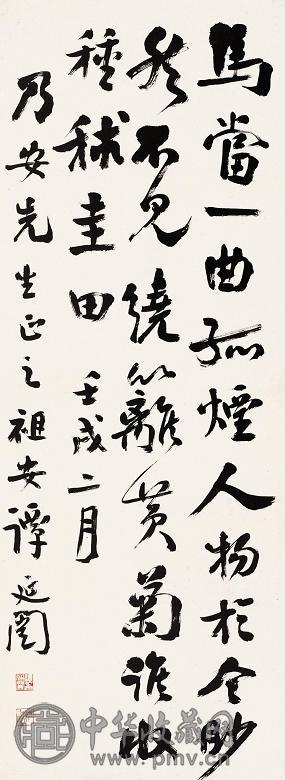 馬當一曲孤煙人物於今眇
然不見繞籬黃菊誰收
種秫圭田 壬戌二月
乃安先生正之 祖安譚延闓
中华收藏网
www.pmv.cn